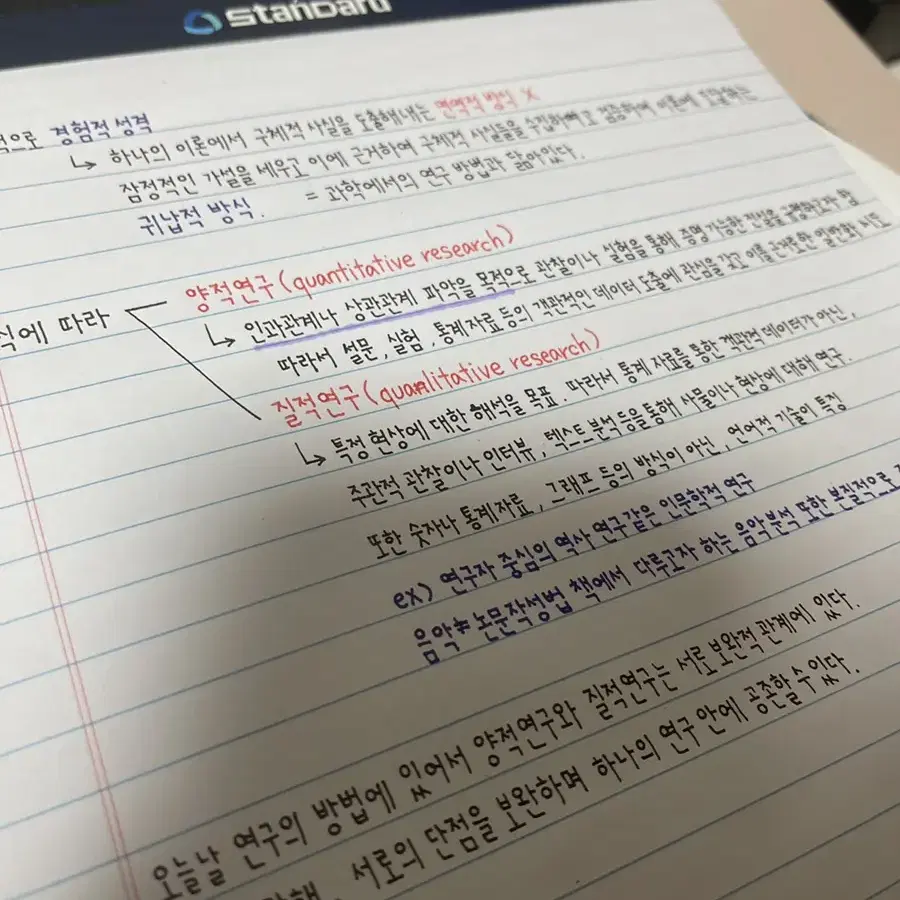 Standard
적으로 경험적 성격
↳ 하나의 이론에서 구체적 사실을 도출해내는 연역적 방식 X
잠정적인 가설을 세우고 이에 근거하여 구체적 사실들을 수집하며 검증하여 이론에 도달하는
귀납적 방식. = 과학에서의 연구 방법과 닮아있다.
양적연구(quantitative research)
식에 따라
↳ 인과관계나 상관관계 파악을 목적으로 관찰이나 실험을 통해 증명 가능한 진실을 규명하고자 함
따라서 설문, 실험, 통계자료 등의 객관적인 데이터 도출에 관심을 갖고 이를 근거로한 일반화 시도
질적연구(qualitative research)
↳ 특정 현상에 대한 해석을 목표. 따라서 통계 자료를 통한 객관적 데이터가 아닌,
주관적 관찰이나 인터뷰, 텍스트 분석 등을 통해 사물이나 현상에 대해 연구.
또한 숫자나 통계자료, 그래프 등의 방식이 아닌, 언어적 기술이 특징
ex) 연구자 중심의 역사 연구같은 인문학적 연구
음악 논문작성법 책에서 다루고자 하는 음악분석 또한 본질적으로
오늘날 연구의 방법에 있어서 양적연구와 질적연구는 서로 보완적 관계에 있다.
서로의 단점을 보완하며 하나의 연구 안에 공존할 수 있다.